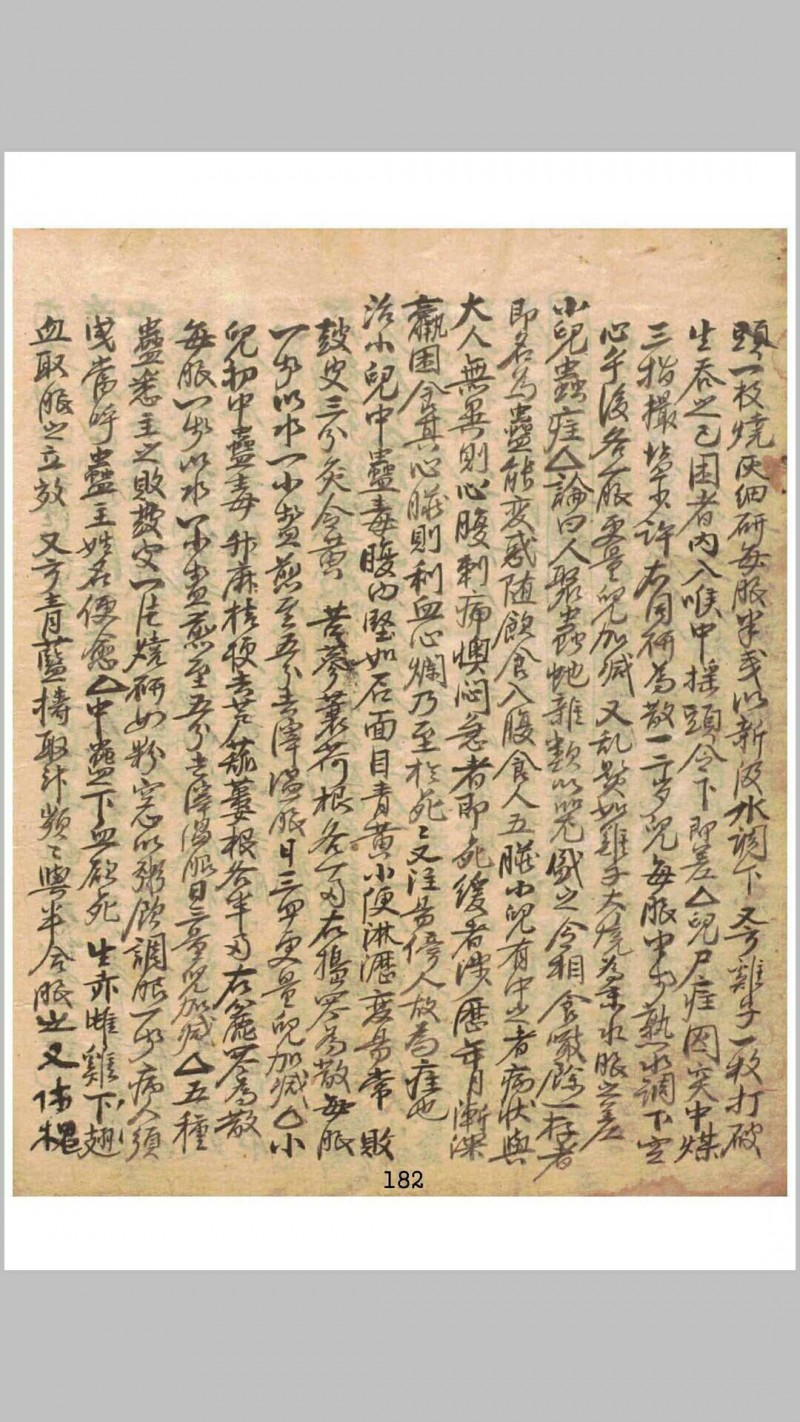 頭一枚燒灰細研每服半戋以新汲水調下又方雞子一枚打破
生吞之已困者內入喉中搖頭令下即差△兒尸疰図突中煤
三指撮塩少許右同研為散一二岁兒每服中少熟水調下空
心午後各一服更量兒加减又乱髮如雞子大燒為末水服之差
小兒蟲疰△論曰人聚蟲虵雜類以器盛之令相食噉餘一存者
即名為蠱能变惑随飲食入腹食人五臟小兒有中之者病状與
大人無異則心腹刺痛懊悶急者即死緩者涉歷年月漸深
羸困食其心臟則利血心爛乃至於死〻又注易傍人故為疰也
治小兒中蠱毒腹內堅如石面目青黃小便淋瀝变易常 敗
鼓皮三分炙令黃 苦蔘蘘荷根各一両右搗罗為散每服
一戋以水一小盞煎至五分去滓温服日三四更量兒加减△小
兒初中蠱毒 升麻桔梗去芦菰蔞根各半両右麄罗為散
每服一戋以水一小盞煎至五分去滓温服日三量兒加减△五種
蠱悉主之敗鼓皮一片燒研如粉空心以粥飲調服一戋病人須
臾常呼蠱主姓名便愈△中蠱下血欲死 生赤雌雞下翅
血取服之立效 又方青藍擣取汁頻〻與半合服之又